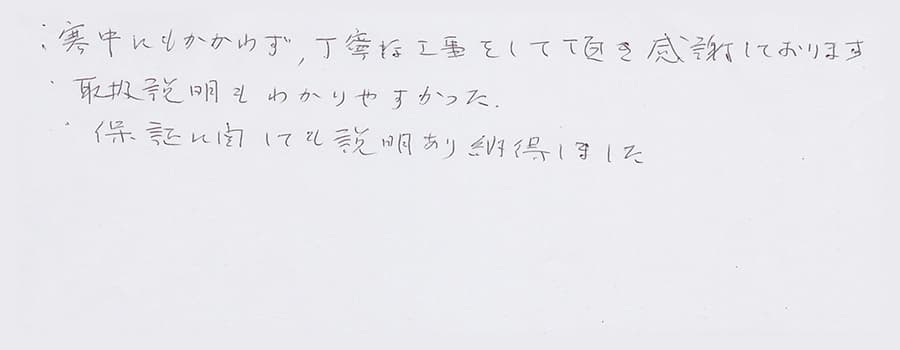 ・寒中にもかかわらず、丁寧な工事をして頂き感謝しております
・取扱説明もわかりやすかった.
・保証に関しても説明あり納得しました